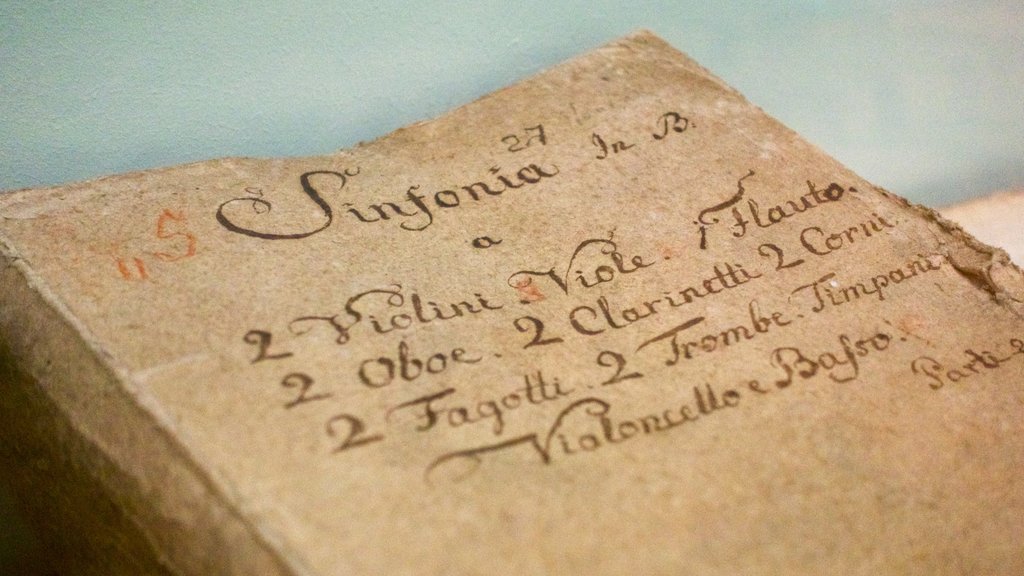 27
Sinfonia In B.
5
a
2 Violini Viole. 1 Flauto.
2 Oboe. 2 Clarinetti 2 Corni
2 Fagotti. 2 Trombe. Timpani
Violoncello e Basso.